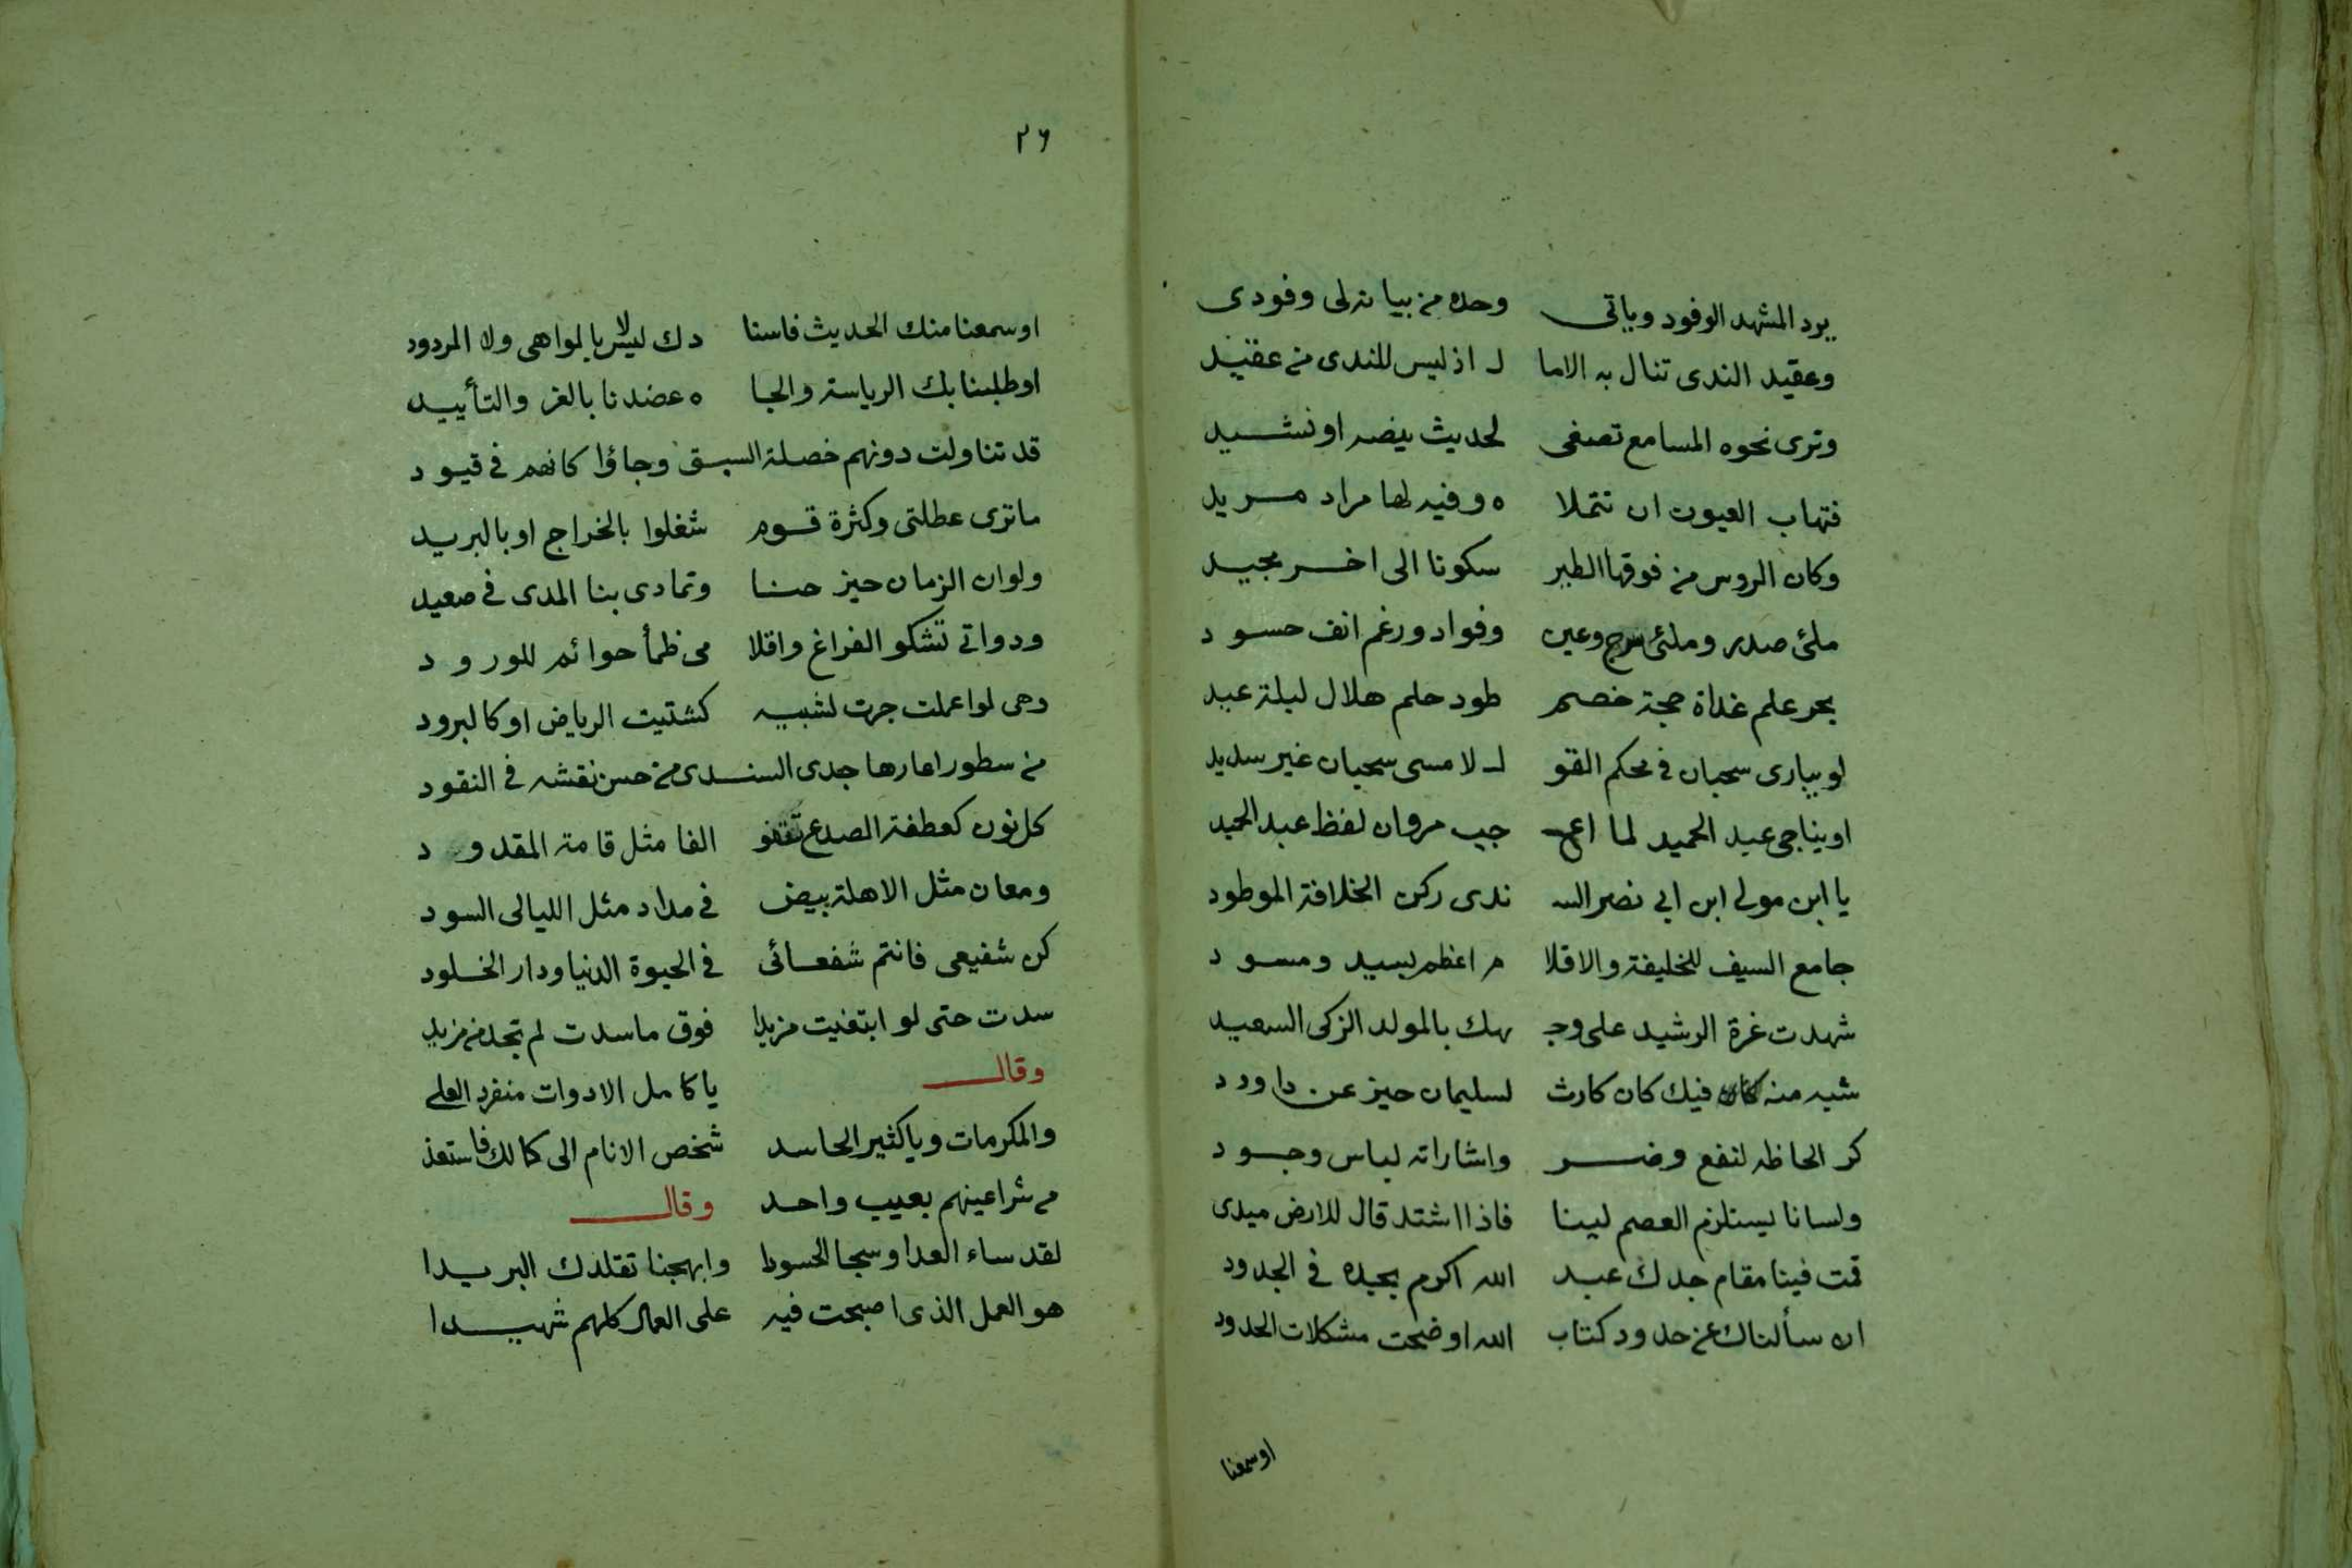 يرد المشهد الوفود وياتى وحده من بيانه لى وفودى
وعقيد الندى تنال به الاما ل اذ ليس للندى من عقيد
وترى نحوه المسامع تصغى لحديث ينصه او نشيد
فتهاب العيون ان تتملا ه وفيه لها مراد مريد
وكان الروس من فوقها الطير سكونا الى اخر مجيد
ملئ صدر وملئ سرج وعين وفواد ورغم انف حسود
بحر علم غداة حجة خصم طود حلم هلال ليلة عيد
لو يبارى سحبان فى محكم القو ل لامسى سحبان غير سديد
او يناجى عبد الحميد لما اعـ جب مروان لفظ عبد الحميد
يا ابن مولى ابن ابى نصر السـ ندى ركن الخلافة الموطود
جامع السيف للخليفة والاقلا م اعظم بسيد ومسود
شهدت غرة الرشيد على وجـ ـهك بالمولد الزكى السعيد
شبه منه فيك كان كارث لسليمان حيز عن داود
كر الحاظه لنفع وضر واشاراته لباس وجود
ولسانا يستلزم العصم لينا فاذا اشتد قال للارض ميدى
قمت فينا مقام جدك عبد الله اكرم بجده فى الجدود
ان سألناك عن حدود كتاب الله اوضحت مشكلات الحدود
اوسمعنا
٢٦
اوسمعنا منك الحديث فاسنا دك ليس بالواهى ولا المردود
اوطلبنا بك الرياسة والجا ه عضدنا بالعز والتأييد
قد تناولت دونهم خصلة السبق وجاؤا كانهم فى قيود
ماترى عطلتى وكثرة قوم شغلوا بالخراج او بالبريد
ولوان الزمان حيز حنا وتمادى بنا المدى فى صعيد
ودواتى تشكو الفراغ واقلا مى ظمأ حوائم للورود
وهى لواعملت جرت لشبيه كشتيت الرياض او كالبرود
من سطور اعارها جدى السندى من حسن نقشه فى النقود
كل نون كعطفة الصدع تقفو الفا مثل قامة المقدود
ومعان مثل الاهلة بيض فى مداد مثل الليالى السود
كن شفيعى فانتم شفعائى فى الحيوة الدنيا ودار الخلود
سدت حتى لو ابتغيت مزيدا فوق ماسدت لم تجد من مزيد
وقال يا كامل الادوات منفرد العلى
والمكرمات ويا كثير الحاسد شخص الانام الى كمالك فاستعذ
من شر اعينهم بعيب واحد وقال
لقد ساء العدا وسجا الحسودا وابهجنا تقلدك البريدا
هو العمل الذى اصبحت فيه على العمال كلهم شهيدا